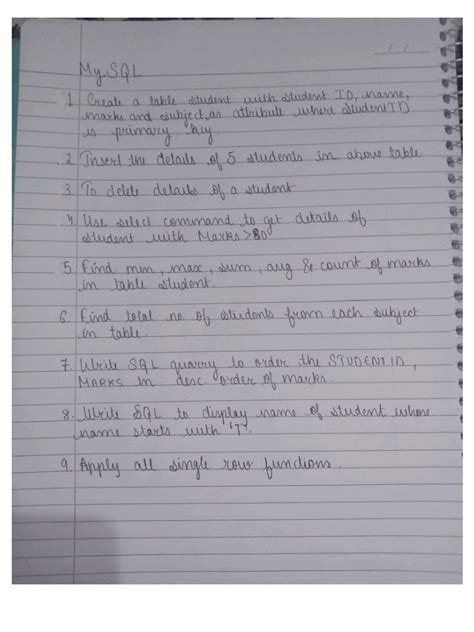 _/_/_
My SQL
1. Create a table student with student ID, name,
marks and subject, as attribute where Student ID
is primary key
2. Insert the details of 5 students in above table
3. To delete details of a student
4. Use select command to get details of
student with Marks >80
5. Find min, max, sum, avg & count of marks
in table student.
6. Find total no. of students from each subject
in table.
7. Write SQL quarry to order the STUDENT ID,
MARKS in desc. order of marks.
8. Write SQL to display name of student whose
name starts with 'T'.
9. Apply all single row functions.